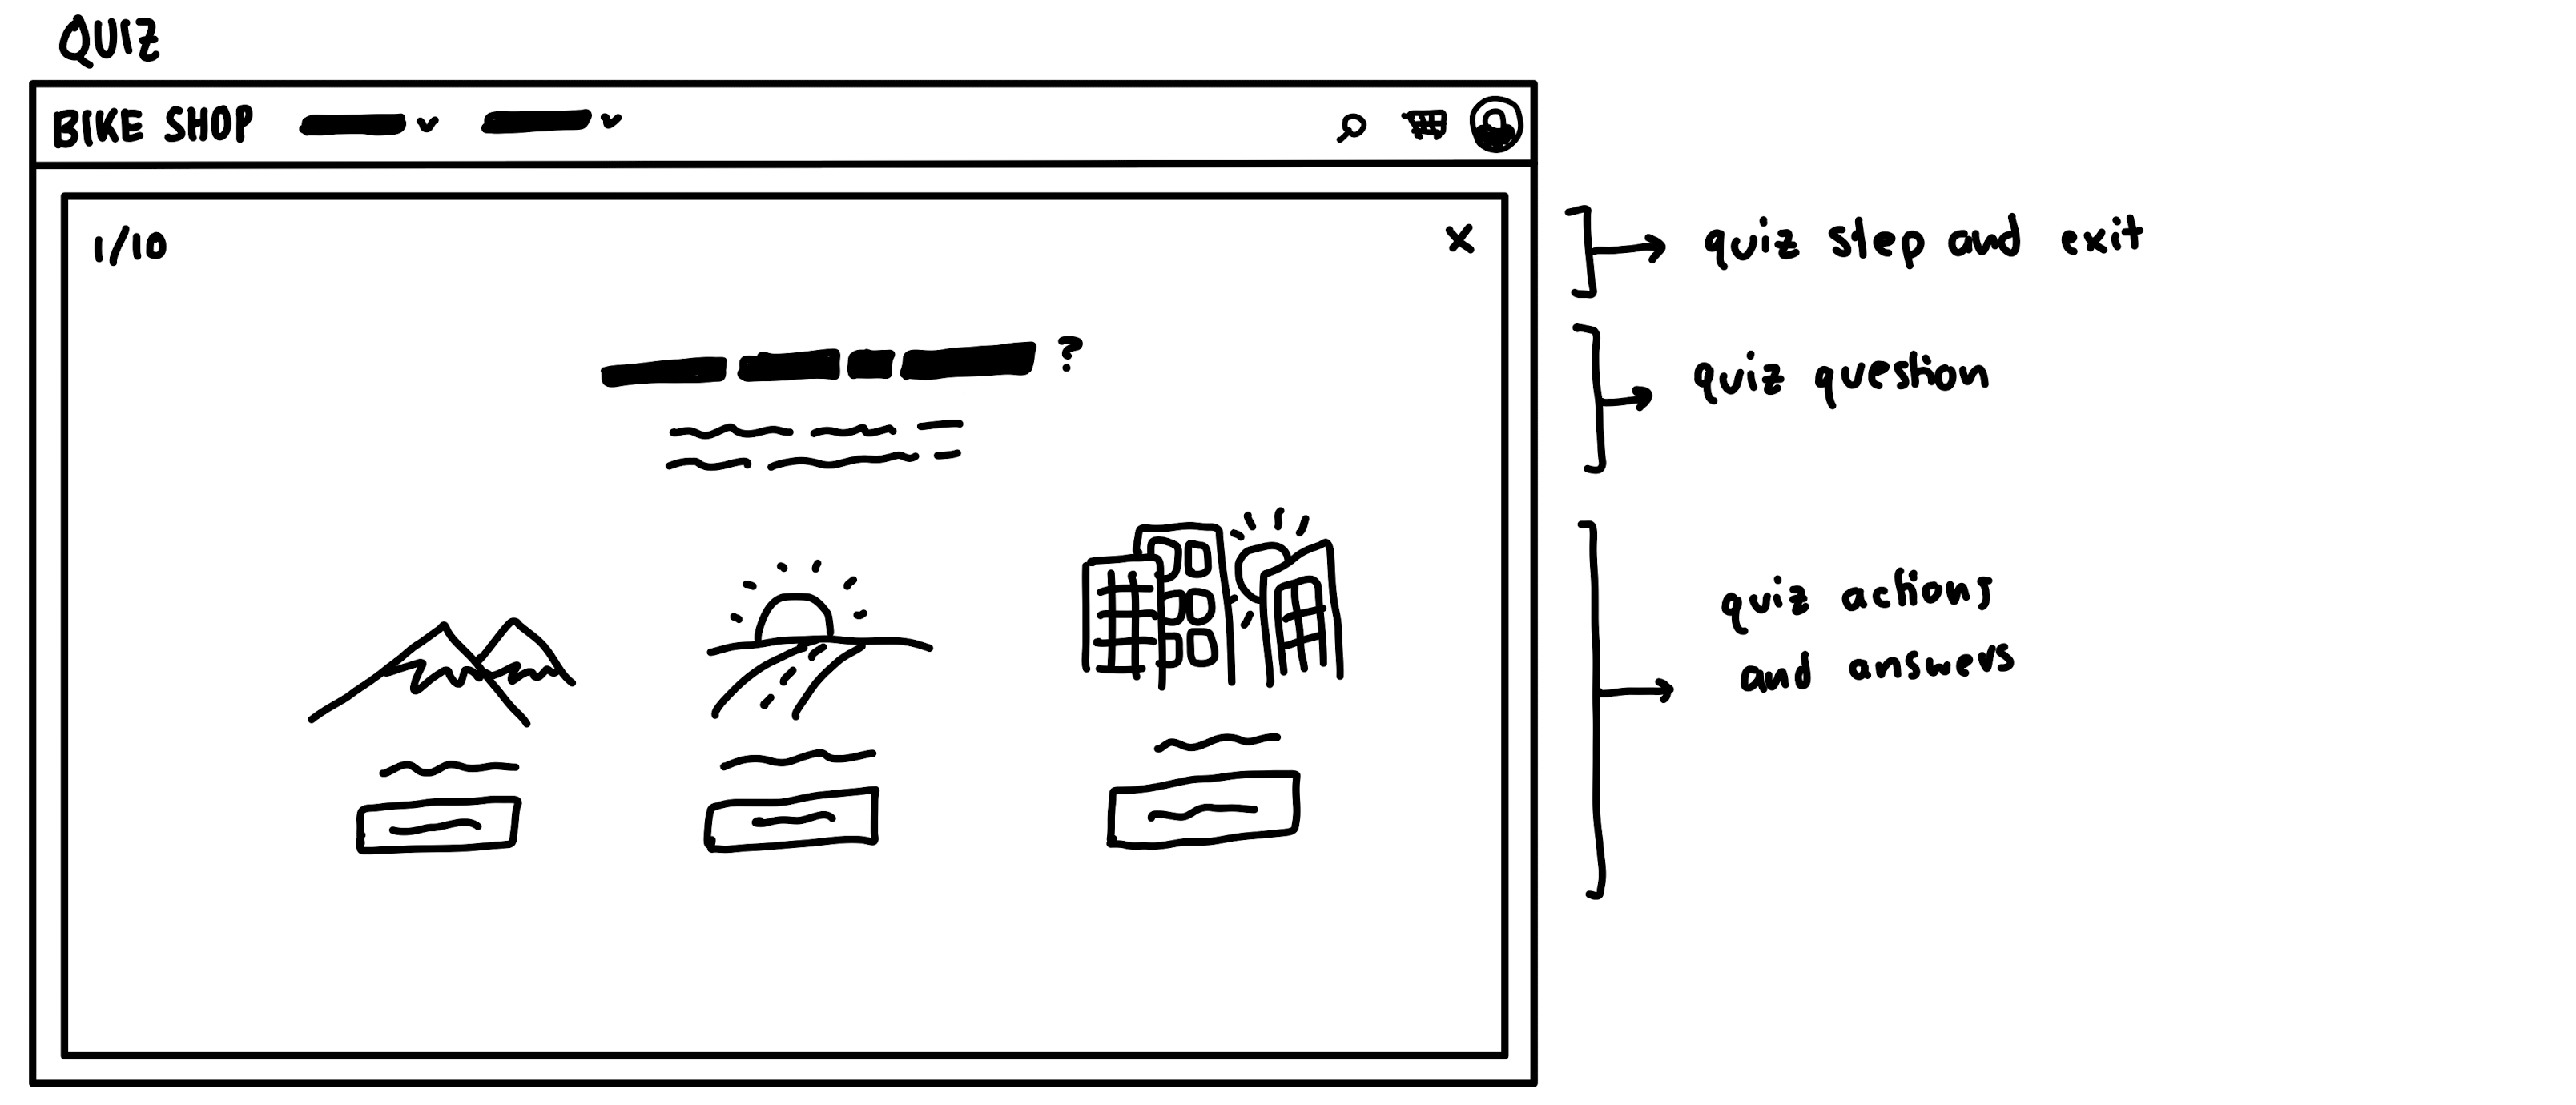 QUIZ
BIKE SHOP
1/10
X
?
quiz step and exit
quiz question
quiz actions
and answers